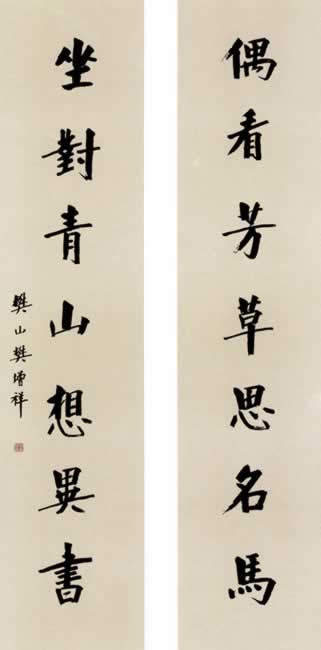 偶看芳草思名馬
坐對青山想異書
樊山樊增祥